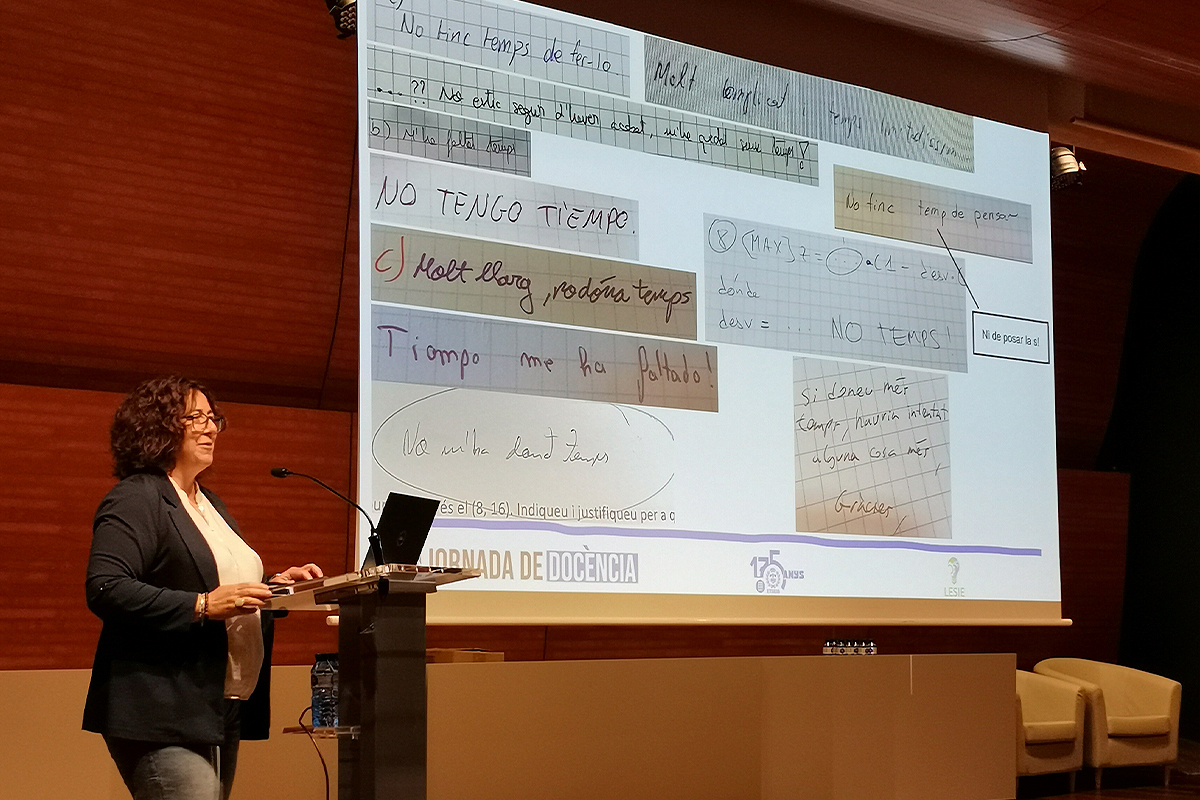 No tinc temps de fer-lo.
Molt complicat i temps limitadíssim
...?? No estic segur d'haver acabat, m'he quedat sense temps!
b) M'ha faltat temps
NO TENGO TIEMPO.
No tinc temp de pensar
c) Molt llarg, no dóna temps
(MAX) Z = · (1 - desv.
dónde
desv = ... NO TEMPS!
Ni de posar la s!
Tiempo me ha faltado!
No m'ha donat temps
Si doneu més
temps, hauria intentat
alguna cosa més,
Gràcies,
és el (8, 16). Indiqueu i justifiqueu per a q
JORNADA DE DOCÈNCIA
175 ANYS
LESIE